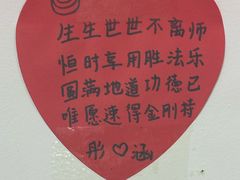 生生世世不离师
恒时享用胜法乐
圆满地道功德已
唯愿速得金刚持
彤♡涵